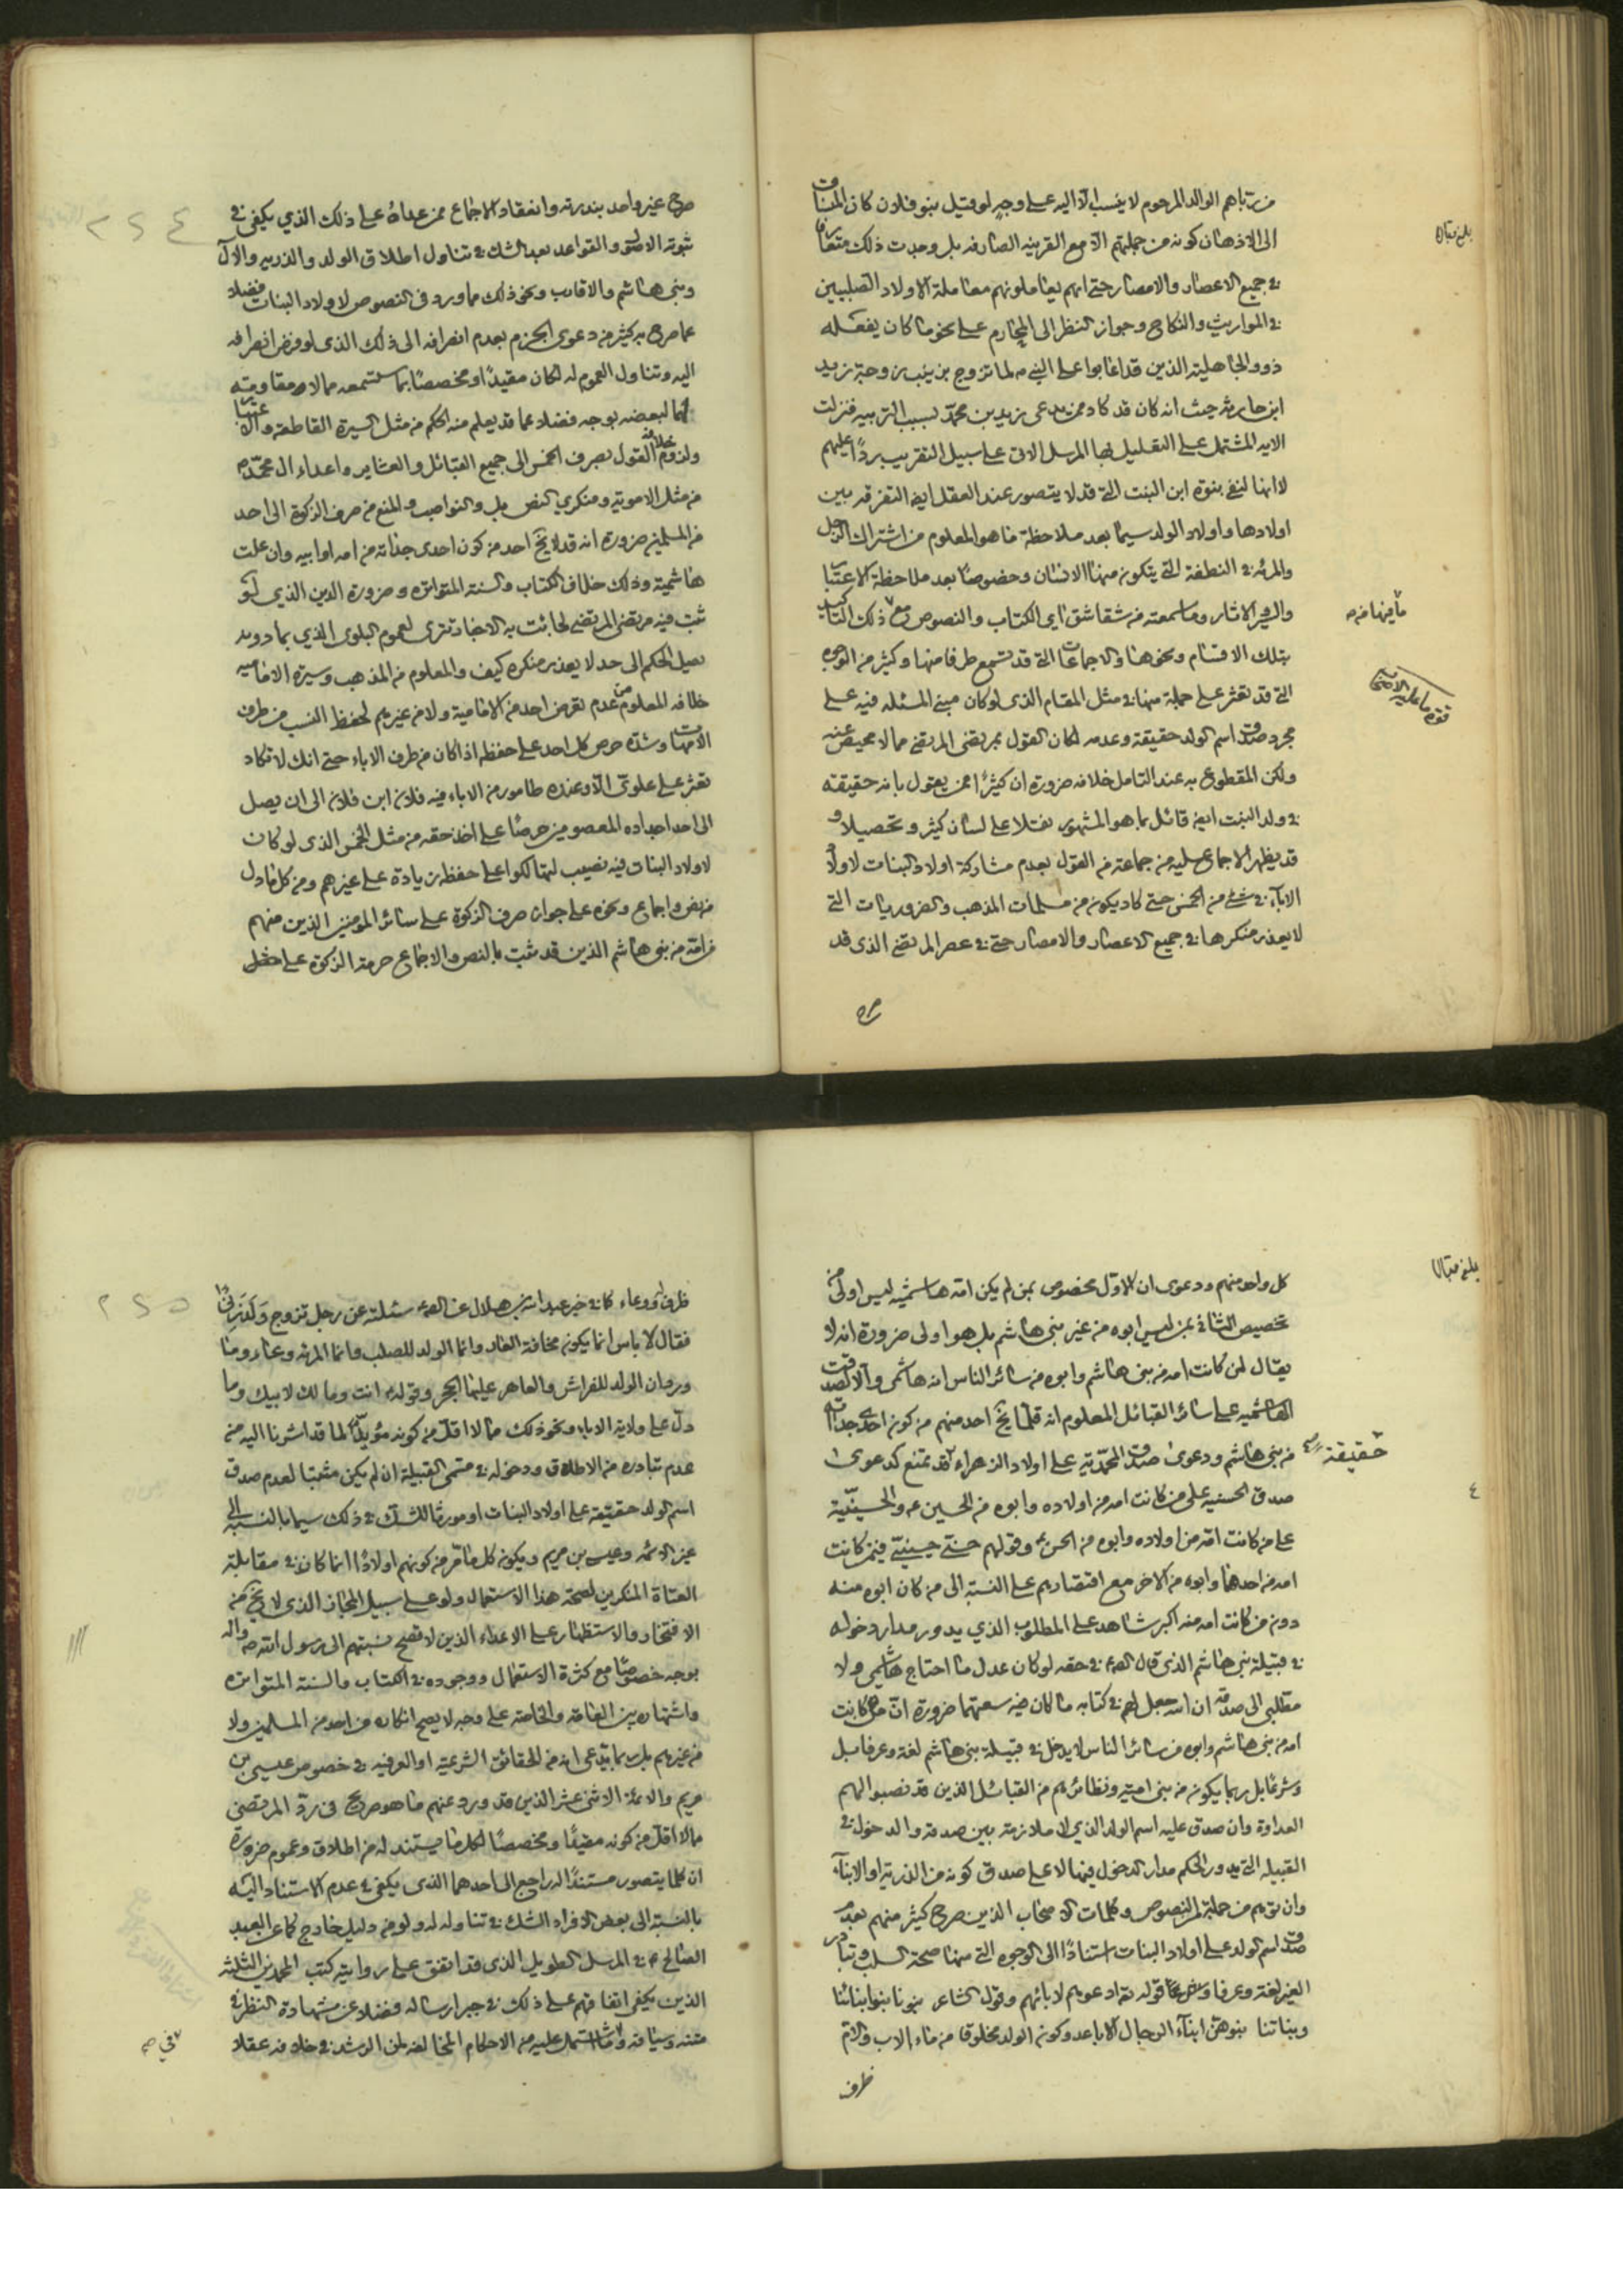 من رباهم الوالد المرحوم لا ينسب الا اليه على وجه لو قيل بنو فلان كان المنساق
الى الاذهان كونه من جملتهم الا مع القرينه الصارفه بل وجدت ذلك متعارفا
في جميع الاعصار والامصار حتى انهم يعاملونهم معاملة الاولاد الصلبيين
في المواريث والنكاح وجواز النظر الى المحارم على نحو ما كان يفعله
ذوو الجاهلية الذين قد اعابوا على النبي ص لما تزوج بزينب زوجة زيد
ابن حارثه حيث انه كان قد كاد ممن يدعى زيد بن محمد بسبب التربيه فنزلت
الايه المشتمل على التعليل بها المرسل الاتي على سبيل التقريب ردا عليهم
لا انها لنفي بنوة ابن البنت التي قد لا يتصور عند العقل ايضا التفرقه بين
اولادها واولاد الولد سيما بعد ملاحظة ما هو المعلوم من اشتراك الرجل
والمرئه في النطفة التي يتكون منها الانسان وخصوصا بعد ملاحظة الاعتبار
والاثار وما سمعته من شقاشق اي الكتاب والنصوص مع ذلك التاكيد
بتلك الاقسام ونحوها والاجماعات التي قد تسمع طرفا منها وكثير من الوجوه
التي قد تعثر على جملة منها في مثل المقام الذي لو كان مبنى المسئله فيه على
مجرد صدق اسم الولد حقيقة وعدمه لكان القول بمرتضى المرتضى مما لا محيص عنه
ولكن المقطوع به عند التامل خلافه ضرورة ان كثيرا ممن يقول بانه حقيقة
في ولد البنت ايضا قائل بما هو المشهور نقلا على لسان كثير وتحصيلا و
قد يظهر الاجماع عليه من جماعة من القول بعدم مشاركة اولاد البنات لاولاد
الاباء في شئ من الخمس حتى كاد يكون من مسلمات المذهب والضروريات التي
لا يعذر منكرها في جميع الاعصار والامصار حتى في عصر المرتضى الذي قد
صرح
بلغ مقابله
صرح غير واحد بندرته وانعقاد الاجماع ممن عداه على ذلك الذي يكفي في
ثبوته الاصول والقواعد بعد الشك في تناول اطلاق الولد والذريه والآل
وبني هاشم والاقارب ونحو ذلك مما ورد في النصوص لاولاد البنات فضلا
عما صرح به كثير من دعوى الجزم بعدم انصرافه الى ذلك الذي لو فرض انصرافه
اليه وتناول العموم له لكان مقيدا او مخصصا بما ستسمعه مما لا مقاومة
لهما لبعضه بوجه فضلا عما قد يعلم منه الحكم من مثل السيرة القاطعة والاعتبار
ولزوم خلافه القول بصرف الخمس الى جميع القبائل والعشاير واعداء ال محمد ص
من مثل الامويه ومنكري النص بل والنواصب والمنع من صرف الزكوة الى احد
من المسلمين ضرورة انه قد لا يخ احد من كون احدى جداته من امه او ابيه وان علت
هاشمية وذلك خلاف الكتاب والسنة المتواتره وضرورة الدين الذي لو
ثبت فيه مرتضى المرتضى لجائت به الاخبار تترى لعموم البلوى الذي بما دونه
يصل الحكم الى حد لا يعذر منكره كيف والمعلوم من المذهب وسيرة الاماميه
خلافه المعلوم من عدم تعرض احد من الامامية ولا من غيرهم لحفظ النسب من طرف
الامهات وشدة حرص كل احد على حفظه اذا كان من طرف الاباء حتى انك لا تكاد
تعثر على علوي الا وعنده طامور من الاباء فيه فلان ابن فلان الى ان يصل
الى احد اجداده المعصومين حرصا على اخذ حقه من مثل الخمس الذي لو كان
لاولاد البنات فيه نصيب لتهالكوا على حفظه زيادة على غيرهم ومن كل ما دل
من نص واجماع ونحوه على جواز صرف الزكوة على سائر المومنين الذين منهم
من امه من بني هاشم الذين قد ثبت بالنص والاجماع حرمة الزكوة على
٢٤٤
كل واحد منهم ودعوى ان الاول مخصوص بمن لم يكن امه هاشميه ليس اولى من
تخصيص الثاني بمن ليس ابوه من غير بني هاشم بل هو اولى ضرورة انه لا
يقال لمن كانت امه من بني هاشم وابوه من سائر الناس انه هاشمي والا لصدقت
الهاشميه على سائر القبائل المعلوم انه قلما يخ احد منهم من كون احدى جداته
من بني هاشم ودعوى صدق المحمدية على اولاد الزهراء قد تمنع كدعوى
حقيقة
صدق الحسنيه على من كانت امه من اولاده وابوه من الحسين ع والحسينية
على من كانت امه من اولاده وابوه من الحسن ع وقولهم حسني حسيني فيمن كانت
امه من احدهما وابوه من الاخر مع اقتصارهم على النسبة الى من كان ابوه منه
دون من كانت امه منه اكبر شاهد على المطلوب الذي يدور مدار دخوله
في قبيلة بني هاشم الذي قال الص ع في حقه لو كان عدل ما احتاج هاشمي ولا
مطلبي الى صدقة ان الله جعل لهم في كتابه ما كان فيه سعتهما ضرورة ان من كانت
امه من بني هاشم وابوه من سائر الناس لا يدخل في قبيلة بني هاشم لغة وعرفا بل
وشرعا بل ربما يكون من بني امية ونظائرهم من القبائل الذين قد نصبوا لهم
العداوة وان صدق عليه اسم الولد الذي لا ملازمة بين صدقه والدخول في
القبيلة التي يدور الحكم مدار الدخول فيها لا على صدق كونه من الذرية او الابناء
وان توهم من جملة النصوص وكلمات الاصحاب الذين صرح كثير منهم بعدم
صدق اسم الولد على اولاد البنات استنادا الى الوجوه التي منها صحة السلب وتبادر
الغير لغة وعرفا وشرعا قوله تع ادعوهم لابائهم وقول الشاعر بنونا بنو ابنائنا
وبناتنا بنوهن ابناء الرجال الاباعد وكون الولد مخلوقا من ماء الاب والام
ظرف
بلغ مقابله
٤
ظرف ووعاء كما في خبر عبد الله بن هلال عن الص ع سئلته عن رجل تزوج ولد زنا
فقال لا باس انما يكون مخافة العار وانما الولد للصلب وانما المرئه وعاء وما
ورد ان الولد للفراش والعاهر عليها الحجر وقوله ص انت ومالك لابيك وما
دل على ولاية الاباء ونحو ذلك مما لا اقل من كونه مؤيدا لما قد اشرنا اليه من
عدم تبادره من الاطلاق ودخوله في مسمى القبيلة ان لم يكن مثبتا لعدم صدق
اسم الولد حقيقة على اولاد البنات او مورثا للشك في ذلك سيما بالنسبة الى
غير الائمه وعيسى بن مريم ويكون كل ما مر من كونهم اولادا انما كان في مقابلة
العتاة المنكرين لصحة هذا الاستعمال ولو على سبيل المجاز الذي لا يخ من
الافتخار والاستظهار على الاعداء الذين لا تصح نسبتهم الى رسول الله ص واله
بوجه خصوصا مع كثرة الاستعمال ووجوده في الكتاب والسنة المتواتره
واشتهاره بين العامة والخاصة على وجه لا يصح انكاره من احد من المسلمين ولا
من غيرهم بل ربما يدعى انه من الحقائق الشرعية او العرفيه في خصوص عيسى بن
مريم والائمة الاثني عشر الذين قد ورد عنهم ما هو صريح في رد المرتضى
مما لا اقل من كونه مقيدا ومخصصا لكل ما يستند له من اطلاق وعموم ضرورة
ان كلما يتصور مستندا له راجع الى احدهما الذي يكفي في عدم الاستناد اليه
بالنسبة الى بعض الافراد الشك في تناوله له ولو من دليل خارج كما عن العبد
الصالح ع في المرسل الطويل الذي قد اتفق على روايته كتب المحمدين الثلثة
الذين يكفي اتفاقهم على ذلك في جبر ارساله فضلا عن شهادة النظر في
متنه وسياقه وما اشتمل عليه من الاحكام المخالفة لمن الرشد في خلافه عقلا
٢٤٥